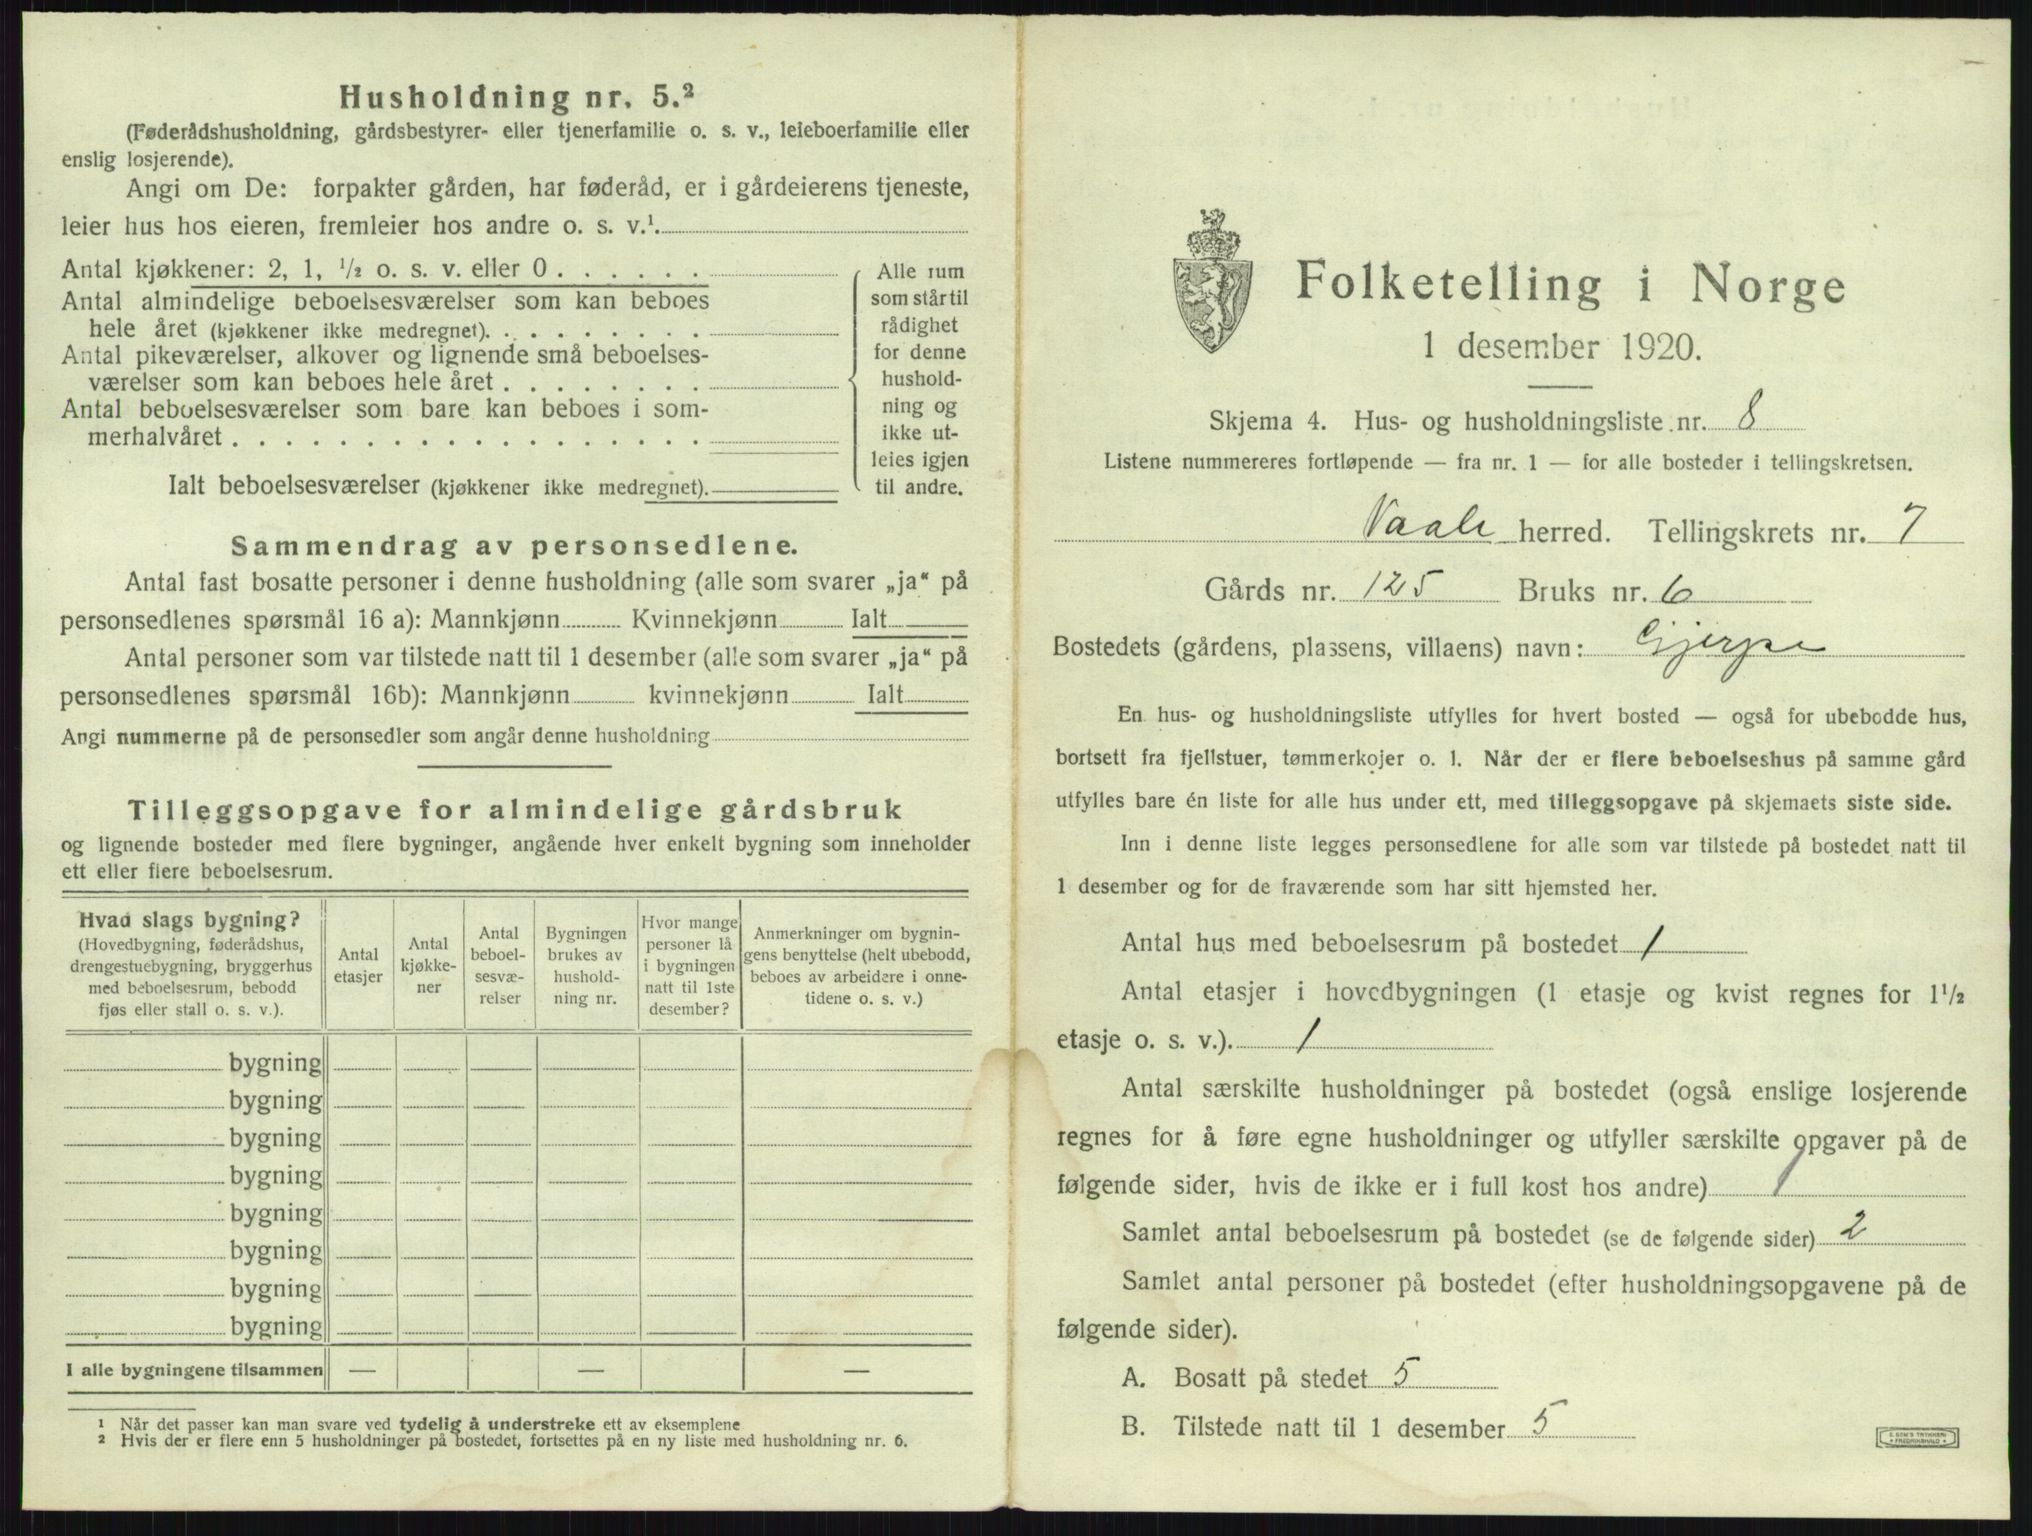 Husholdning nr. 5.²
(Føderådshusholdning, gårdsbestyrer- eller tjenerfamilie o. s. v., leieboerfamilie eller
enslig losjerende).
Angi om De: forpakter gården, har føderåd, er i gårdeierens tjeneste,
leier hus hos eieren, fremleier hos andre o. s. v.¹.
Antal kjøkkener: 2, 1, ½ o. s. v. eller 0 . . . . . .
Antal almindelige beboelsesværelser som kan beboes
hele året (kjøkkener ikke medregnet). . . . . . . . .
Antal pikeværelser, alkover og lignende små beboelses-
værelser som kan beboes hele året . . . . . . . .
Antal beboelsesværelser som bare kan beboes i som-
merhalvåret . . . . . . . . . . . . . . . . . .
Ialt beboelsesværelser (kjøkkener ikke medregnet).
Alle rum
som står til
rådighet
for denne
hushold-
ning og
ikke ut-
leies igjen
til andre.
Sammendrag av personsedlene.
Antal fast bosatte personer i denne husholdning (alle som svarer „ja“ på
personsedlenes spørsmål 16 a): Mannkjønn Kvinnekjønn Ialt
Antal personer som var tilstede natt til 1 desember (alle som svarer „ja“ på
personsedlenes spørsmål 16b): Mannkjønn kvinnekjønn Ialt
Angi nummerne på de personsedler som angår denne husholdning
Tilleggsopgave for almindelige gårdsbruk
og lignende bosteder med flere bygninger, angående hver enkelt bygning som inneholder
ett eller flere beboelsesrum.
Hvad slags bygning?
(Hovedbygning, føderådshus,
drengestuebygning, bryggerhus
med beboelsesrum, bebodd
fjøs eller stall o. s. v.).
Antal
etasjer
Antal
kjøkke-
ner
Antal
beboel-
sesvæ-
relser
Bygningen
brukes av
hushold-
ning nr.
Hvor mange
personer lå
i bygningen
natt til 1ste
desember?
Anmerkninger om bygnin-
gens benyttelse (helt ubebodd,
beboes av arbeidere i onne-
tidene o. s. v.)
bygning
bygning
bygning
bygning
bygning
bygning
bygning
bygning
I alle bygningene tilsammen — — —
¹ Når det passer kan man svare ved tydelig å understreke ett av eksemplene
² Hvis der er flere enn 5 husholdninger på bostedet, fortsettes på en ny liste med husholdning nr. 6.
Folketelling i Norge
1 desember 1920.
Skjema 4. Hus- og husholdningsliste nr. 8
Listene nummereres fortløpende — fra nr. 1 — for alle bosteder i tellingskretsen.
Vaale herred. Tellingskrets nr. 7
Gårds nr. 125 Bruks nr. 6
Bostedets (gårdens, plassens, villaens) navn: Gjerpe
En hus- og husholdningsliste utfylles for hvert bosted — også for ubebodde hus,
bortsett fra fjellstuer, tømmerkojer o. l. Når der er flere beboelseshus på samme gård
utfylles bare én liste for alle hus under ett, med tilleggsopgave på skjemaets siste side.
Inn i denne liste legges personsedlene for alle som var tilstede på bostedet natt til
1 desember og for de fraværende som har sitt hjemsted her.
Antal hus med beboelsesrum på bostedet 1
Antal etasjer i hovedbygningen (1 etasje og kvist regnes for 1½
etasje o. s. v.). 1
Antal særskilte husholdninger på bostedet (også enslige losjerende
regnes for å føre egne husholdninger og utfyller særskilte opgaver på de
følgende sider, hvis de ikke er i full kost hos andre) 1
Samlet antal beboelsesrum på bostedet (se de følgende sider) 2
Samlet antal personer på bostedet (efter husholdningsopgavene på de
følgende sider).
A. Bosatt på stedet 5
B. Tilstede natt til 1 desember 5